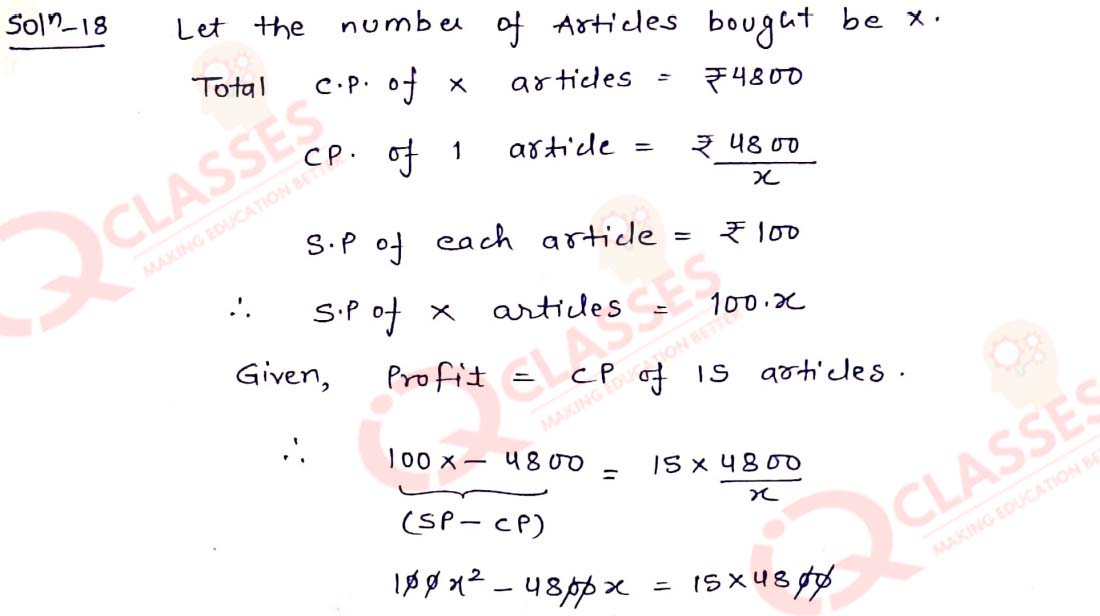 Solⁿ-18 Let the number of Articles bought be x.
Total C.P. of x articles = ₹4800
CP. of 1 article = ₹ 4800/x
S.P of each article = ₹ 100
∴ S.P of x articles = 100.x
Given, Profit = CP of 15 articles.
∴ 100x - 4800 = 15 × 4800/x
(SP - CP)
100x² - 4800x = 15 × 4800
IQ CLASSES
MAKING EDUCATION BETTER
IQ CLASSES
MAKING EDUCATION BETTER
IQ CLASSES
MAKING EDUCATION BE